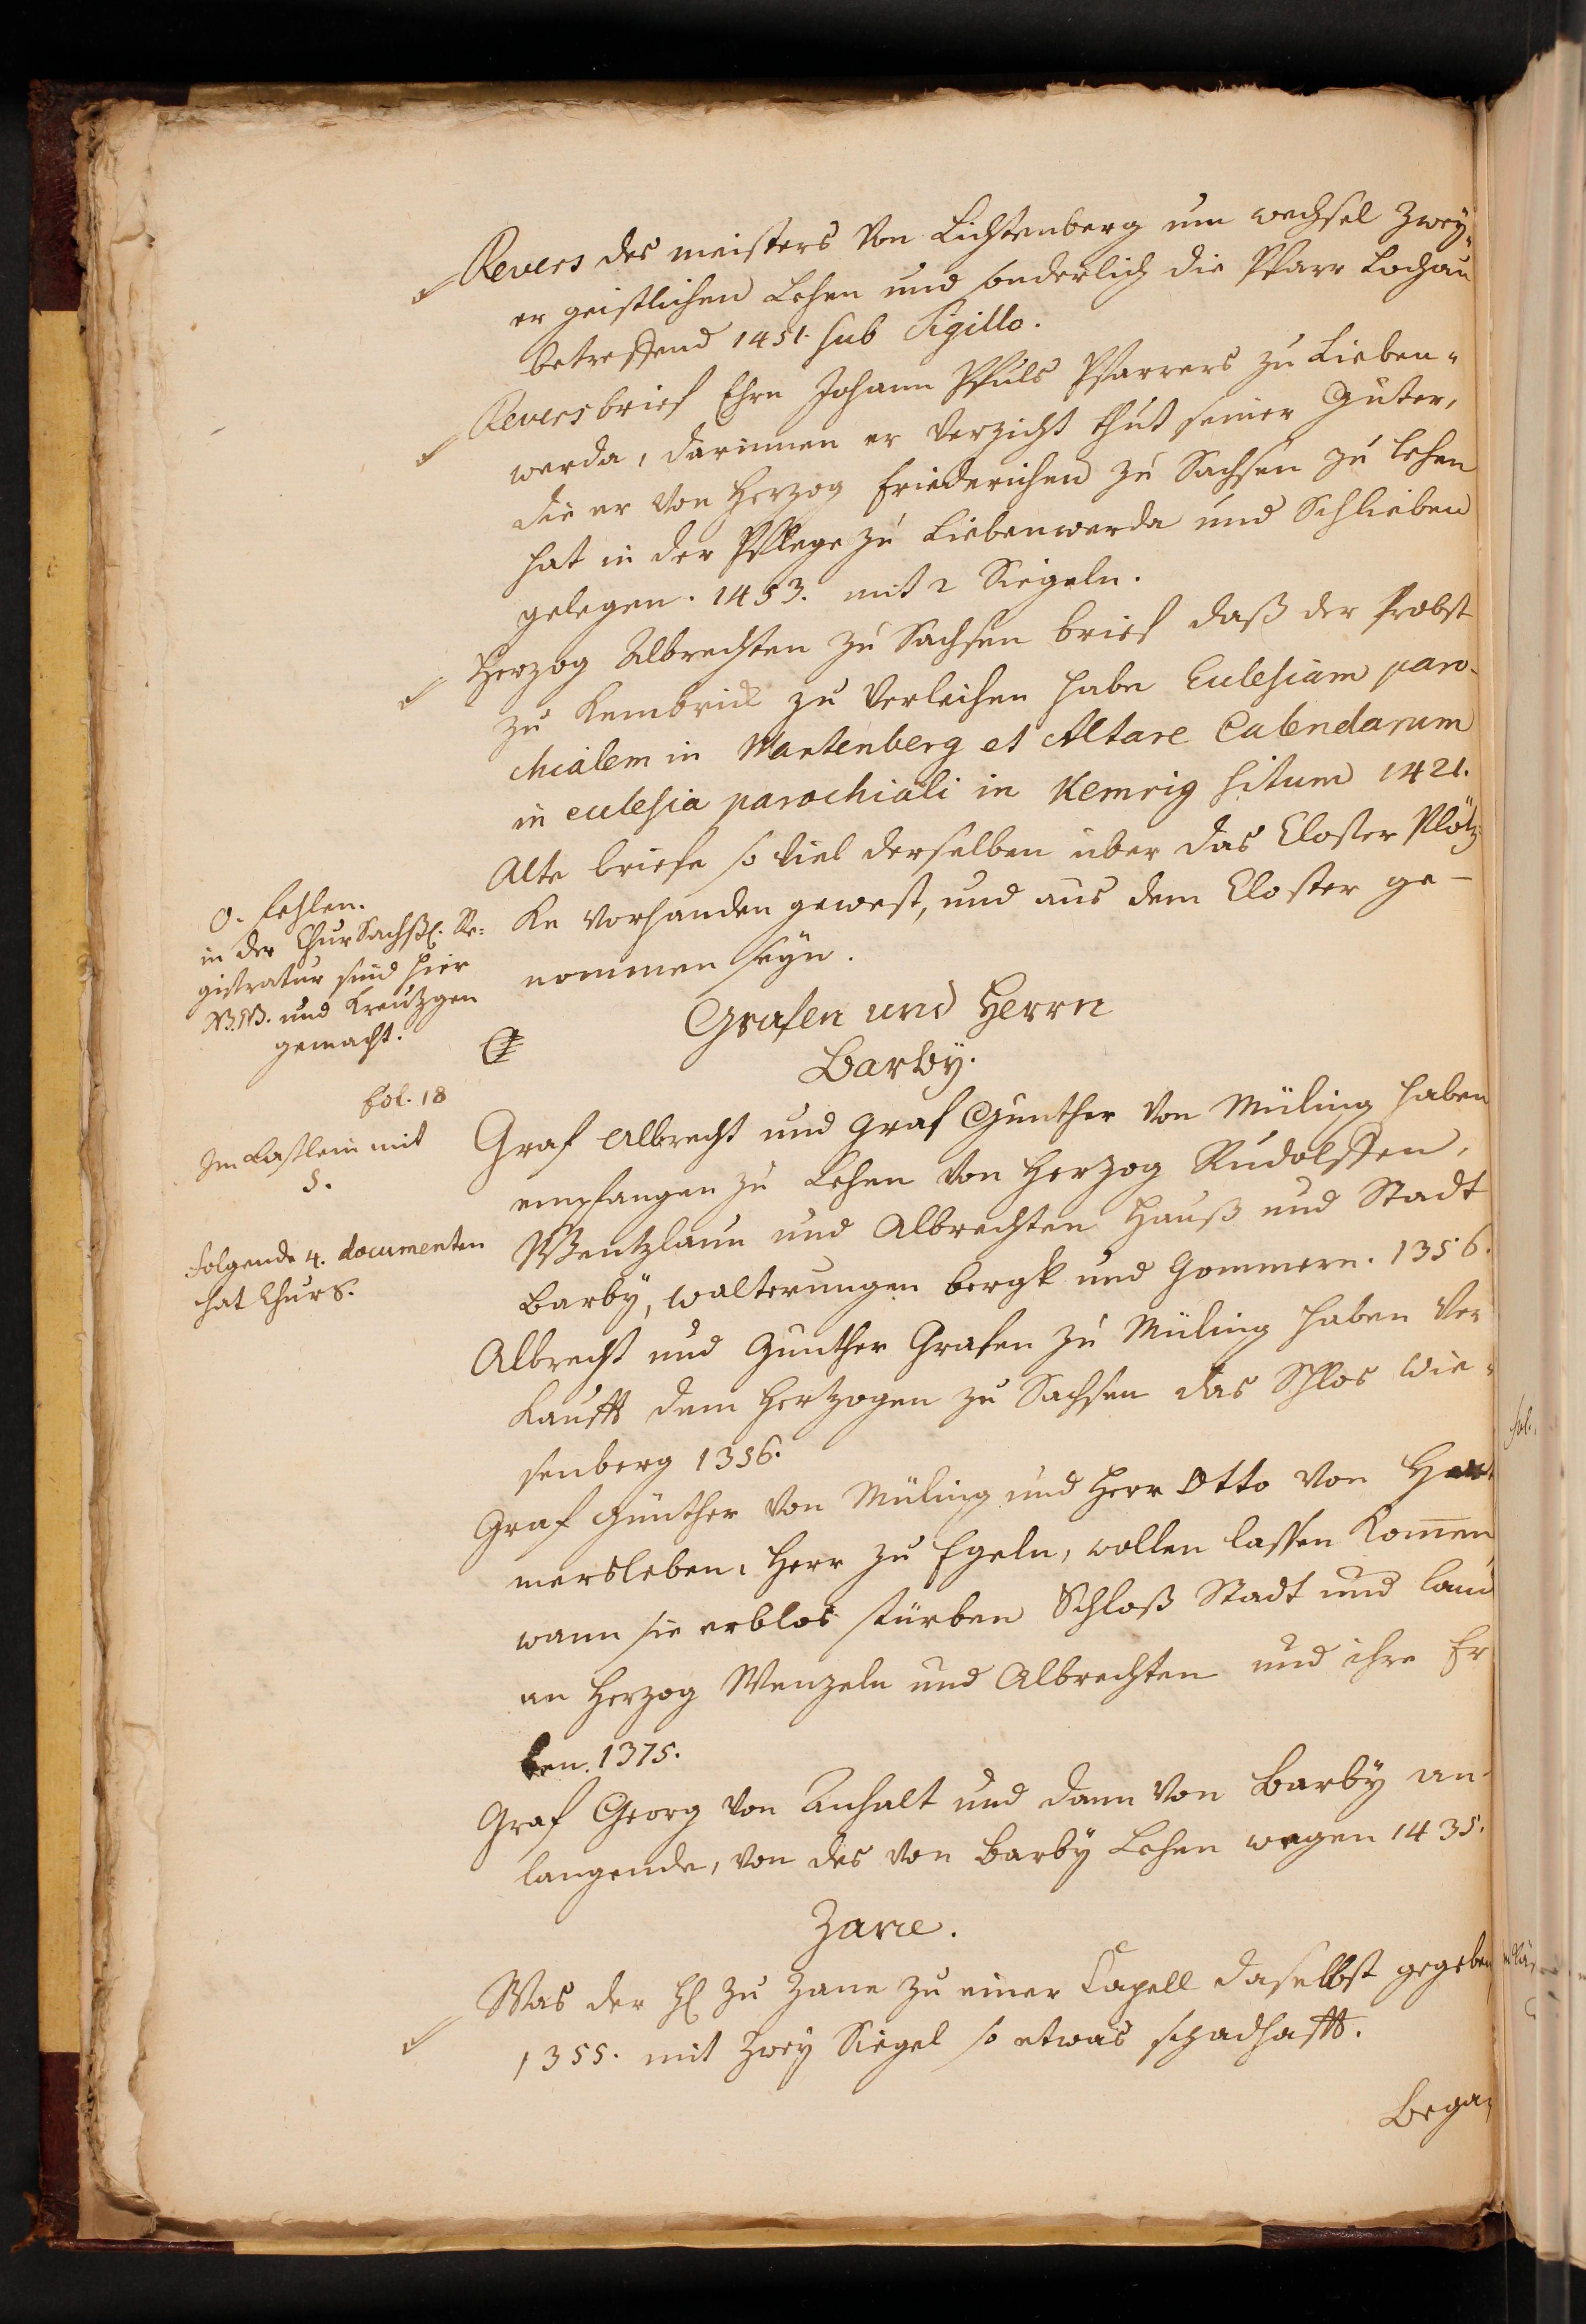 Revers des meisters von Lichtenberg um wechsel zwey-
er geistlichen Lehen und sonderlich die Pfarr Lochau
betreffend 1451. sub Sigillo.
Reversbrief Ehrn Johann Pfuls Pfarrers zu Lieben-
werda, darinnen er verzicht thut seiner Güter,
die er von Herzog Friederichen zu Sachsen zu lehen
hat in der Pflege zu Liebenwerda und Schlieben
gelegen. 1453. mit 2 Siegeln.
Herzog Albrechten zu Sachsen brief daß der Probst
zu Kembrick zu verleihen habe Eulesiam paro-
chialem in Wartenberg et Altare Calendarum
in eulesia parochiali in Kemrig situm 1421.
Alte briefe so viel derselben über das Closter Plötz-
ke vorhanden gewest, und aus dem Closter ge-
nommen seyn.
O. fehlen.
in der ChurSächß. Re-
gistratur sind hier
NB. NB. und Kreutzgen
gemacht.
Grafen und Herrn
Barby.
fol. 18
Im Kästlein mit
S.
Graf Albrecht und Graf Gunther von Müling haben
empfangen zu Lehen von Herzog Rudolffen,
Wentzlaun und Albrechten Hauß und Stadt
Barby, walterungen bergk und Gommern. 1356.
folgende 4. documenten
hat ChurS.
Albrecht und Gunther Grafen zu Müling haben ver
kaufft dem Hertzogen zu Sachsen das Schlos Wie-
senberg 1356.
Graf Günther von Müling und Herr Otto von Ha
mersleben, Herr zu Egeln, wollen lassen komen,
wann sie erblos stürben Schloß Stadt und land
an Herzog Wenzeln und Albrechten und ihre Er
ben. 1375.
Graf Georg von Anhalt und dann von Barby an-
langende, von des von Barby Lehen wegen 1435.
Zane.
Was der H zu Zane zu einer Capell daselbst gegeben
1355. mit zwey Siegel so etwas schadhafft.
Bega